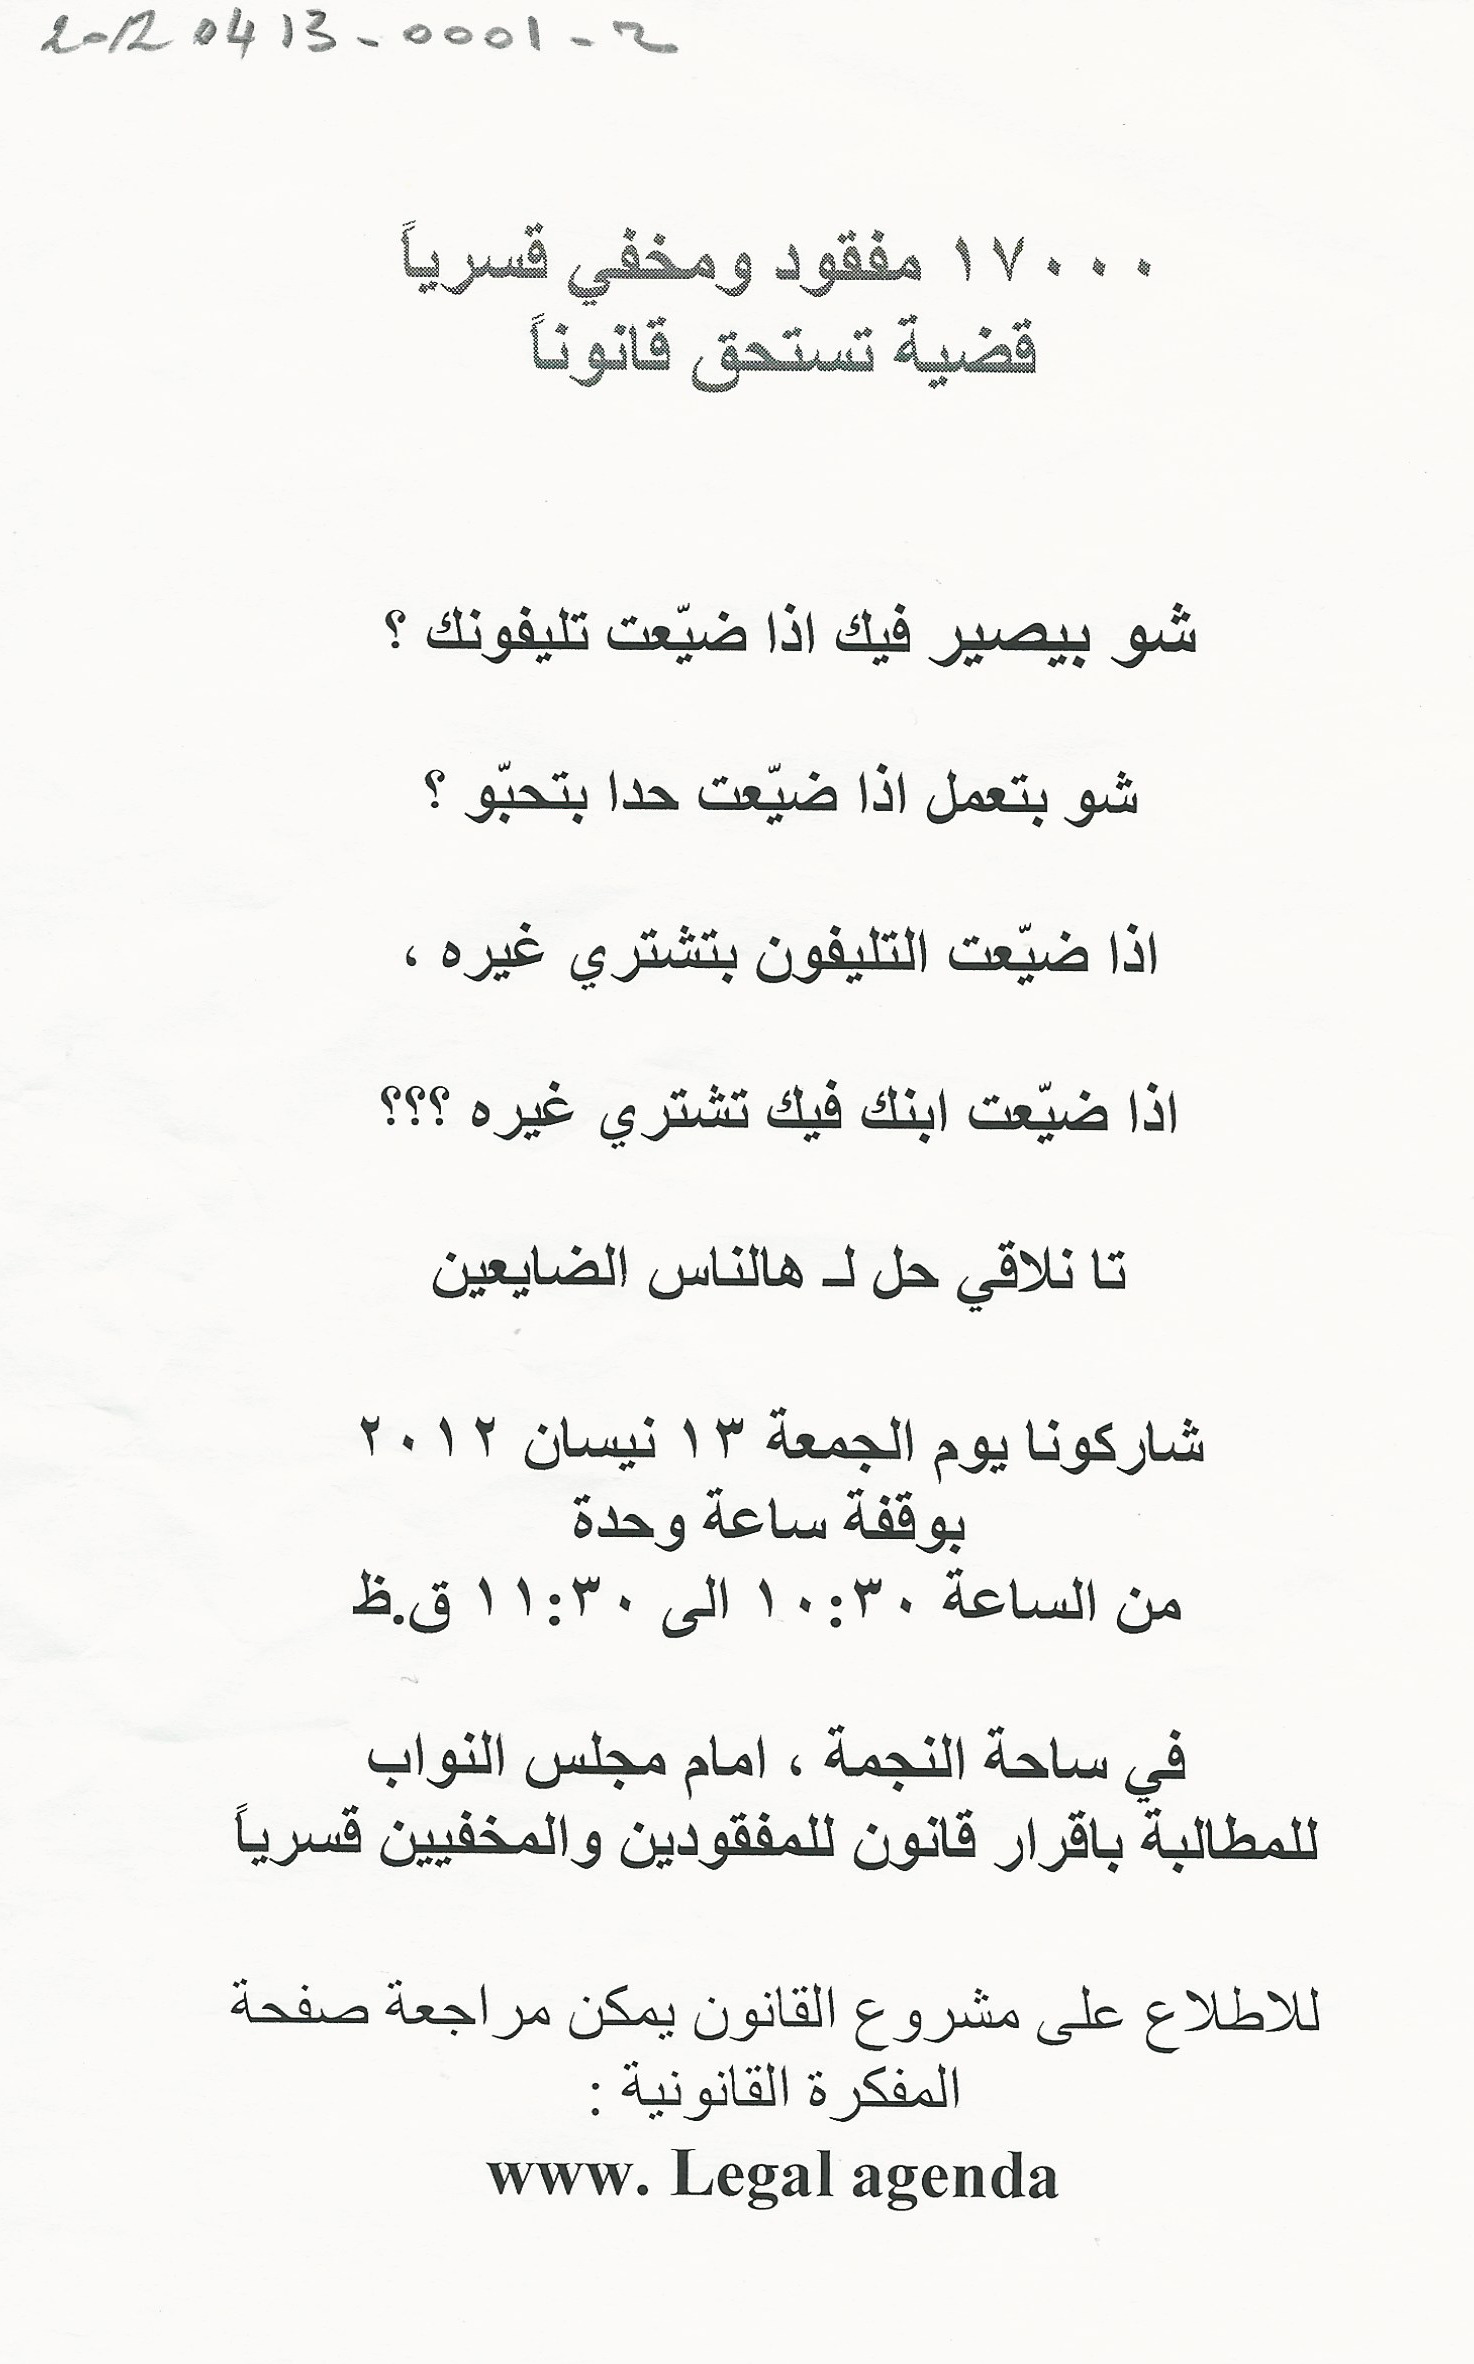 20120413-0001-2
١٧٠٠٠ مفقود ومخفي قسرياً
قضية تستحق قانوناً
شو بيصير فيك اذا ضيّعت تليفونك ؟
شو بتعمل اذا ضيّعت حدا بتحبّو ؟
اذا ضيّعت التليفون بتشتري غيره ،
اذا ضيّعت ابنك فيك تشتري غيره ؟؟؟
تا نلاقي حل لـ هالناس الضايعين
شاركونا يوم الجمعة ١٣ نيسان ٢٠١٢
بوقفة ساعة وحدة
من الساعة ١٠:٣٠ الى ١١:٣٠ ق.ظ
في ساحة النجمة ، امام مجلس النواب
للمطالبة باقرار قانون للمفقودين والمخفيين قسرياً
للاطلاع على مشروع القانون يمكن مراجعة صفحة
المفكرة القانونية :
www. Legal agenda